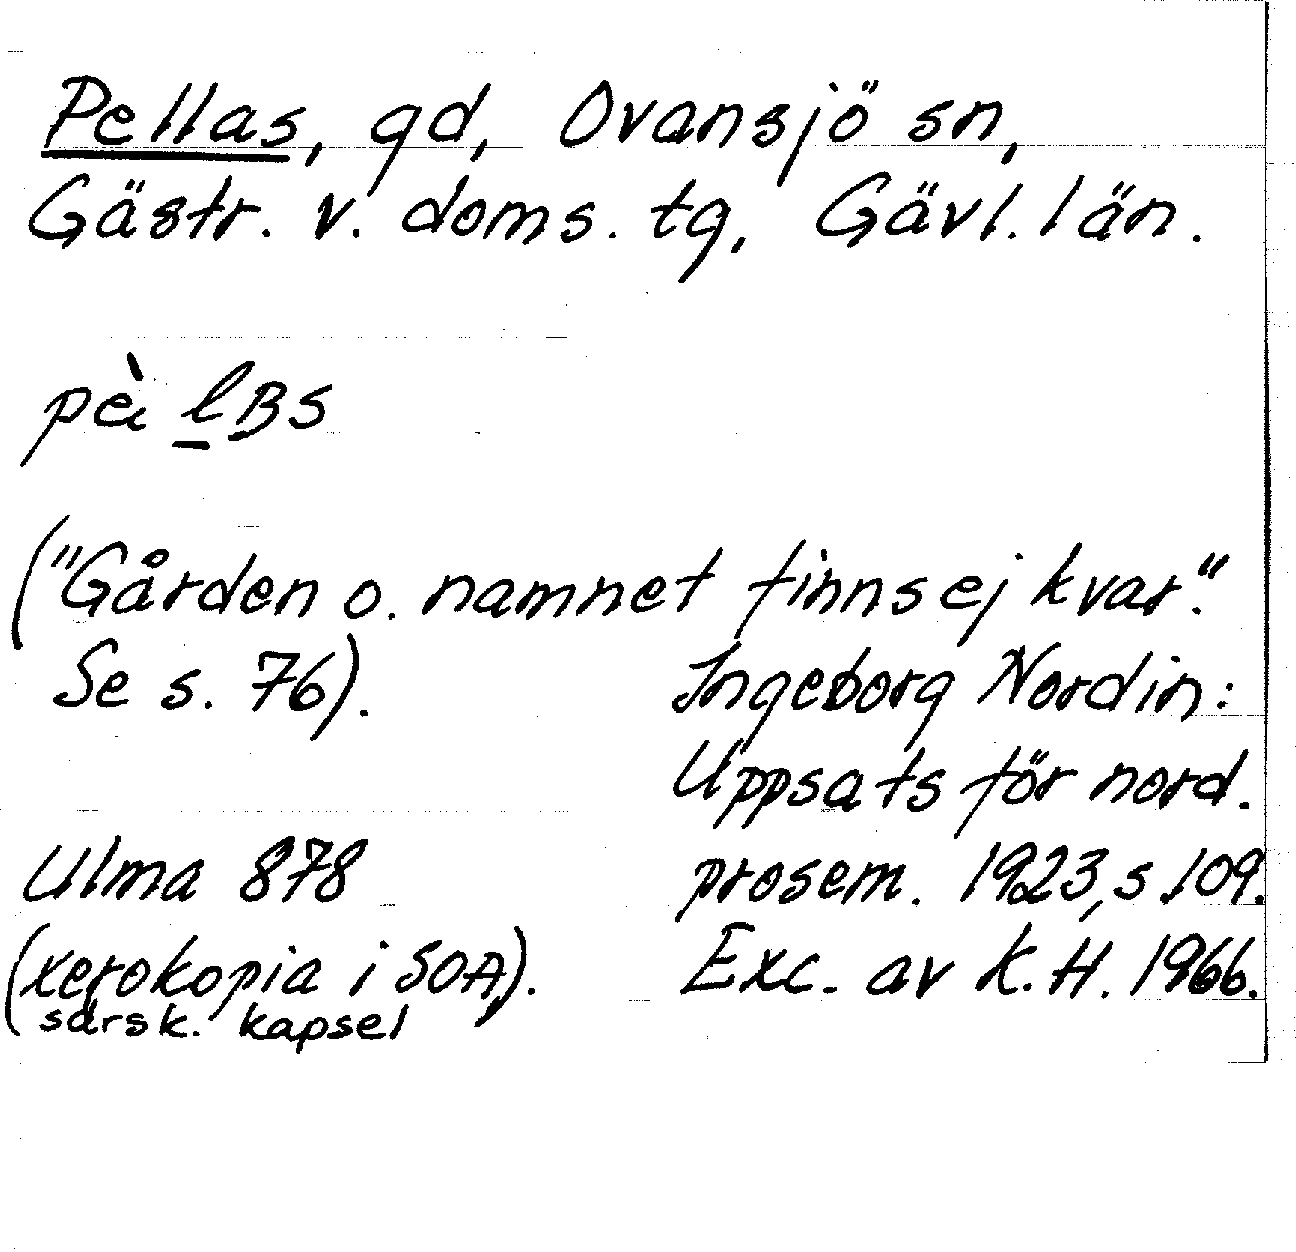 Pellas, gd, Ovansjö sn,
Gästr. v. doms. tg, Gävl. län.
("Gården o. namnet finns ej kvar."
Se s. 76).
Ingeborg Nordin:
Uppsats för nord.
prosem. 1923, s. 109.
Exc. av K.H. 1966.
Ulma 878
(xerokopia i SOA,
särsk. kapsel).